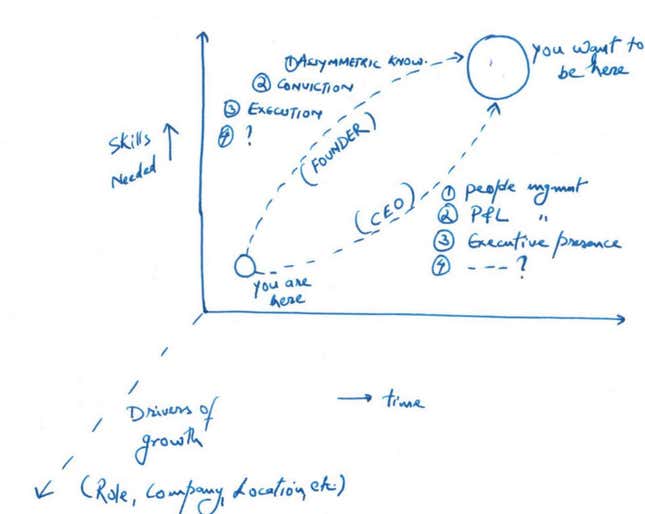 ① ASSYMMETRIC KNOW.
② CONVICTION
③ EXECUTION
④ ?
you want to
be here
Skills
Needed
(FOUNDER)
(CEO)
① people mgmnt
② P&L "
③ Executive presence
④ ---- ?
you are
here
Drivers of
growth
(Role, Company, Location, etc)
→ time